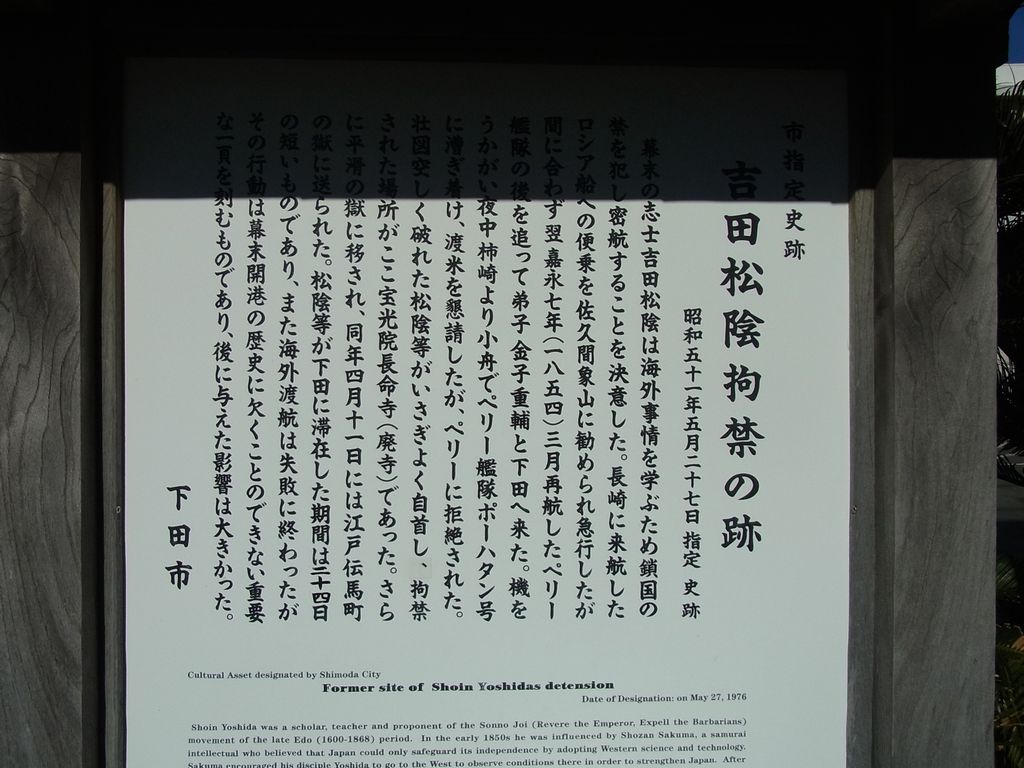 市指定史跡
吉田松陰拘禁の跡
昭和五十一年五月二十七日指定 史跡
幕末の志士吉田松陰は海外事情を学ぶため鎖国の
禁を犯し密航することを決意した。長崎に来航した
ロシア船への便乗を佐久間象山に勧められ急行したが
間に合わず翌嘉永七年(一八五四)三月再航したペリー
艦隊の後を追って弟子金子重輔と下田へ来た。機を
うかがい夜中柿崎より小舟でペリー艦隊ポーハタン号
に漕ぎ着け、渡米を懇請したが、ペリーに拒絶された。
壮図空しく破れた松陰等がいさぎよく自首し、拘禁
された場所がここ宝光院長命寺(廃寺)であった。さら
に平滑の獄に移され、同年四月十一日には江戸伝馬町
の獄に送られた。松陰等が下田に滞在した期間は二十四日
の短いものであり、また海外渡航は失敗に終わったが
その行動は幕末開港の歴史に欠くことのできない重要
な一頁を刻むものであり、後に与えた影響は大きかった。
下田市
Cultural Asset designated by Shimoda City
Former site of Shoin Yoshidas detension
Date of Designation: on May 27, 1976
Shoin Yoshida was a scholar, teacher and proponent of the Sonno Joi (Revere the Emperor, Expell the Barbarians)
movement of the late Edo (1600-1868) period. In the early 1850s he was influenced by Shozan Sakuma, a samurai
intellectual who believed that Japan could only safeguard its independence by adopting Western science and technology.
Sakuma encouraged his disciple Yoshida to go to the West to observe conditions there in order to strengthen Japan. After